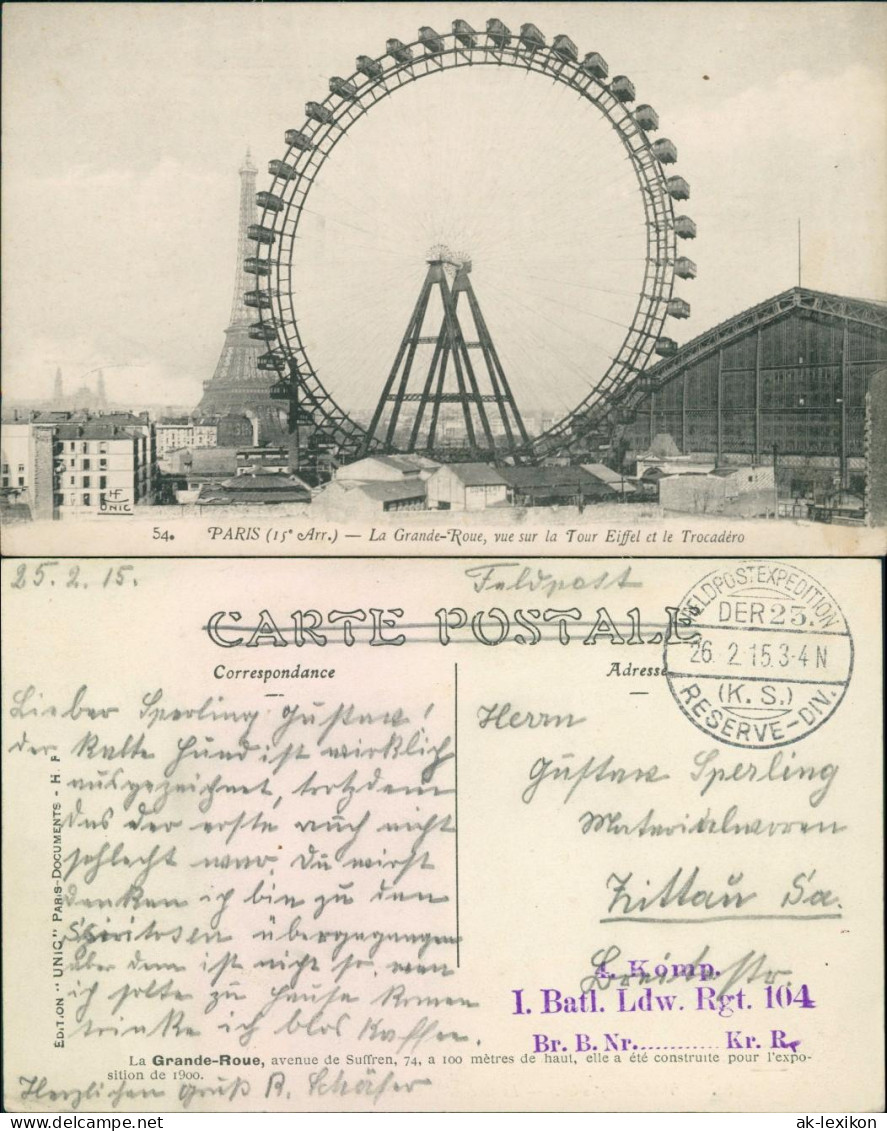 HF
UNIC
54. PARIS (15e Arr.) — La Grande-Roue, vue sur la Tour Eiffel et le Trocadéro
25.2.15. Feldpost
CARTE POSTALE
Correspondance
Adresse
FELDPOSTEXPEDITION
DER 23.
26.2.15.3-4N
(K.S.)
RESERVE-DIV.
Lieber Sperling Gustav!
der Kalte Hund ist wirklich
ausgezeichnet, trotzdem
das der erste auch nicht
schlecht war. Du wirst
denken ich bin zu den
übergegangen
aber dem ist nicht so, wen
ich solte zu Hause komen
trinke ich blos Kaffee.
Herzlichen Gruß R. Schäfer
Herrn
Gustav Sperling
Materialwaren
Zittau Sa.
Breitestr.
4. Komp.
I. Batl. Ldw. Rgt. 104
Br. B. Nr............ Kr. R.
EDITION "UNIC" PARIS-DOCUMENTS - H. F
La Grande-Roue, avenue de Suffren, 74, a 100 mètres de haut, elle a été construite pour l'expo-
sition de 1900.
ak-lexikon.com